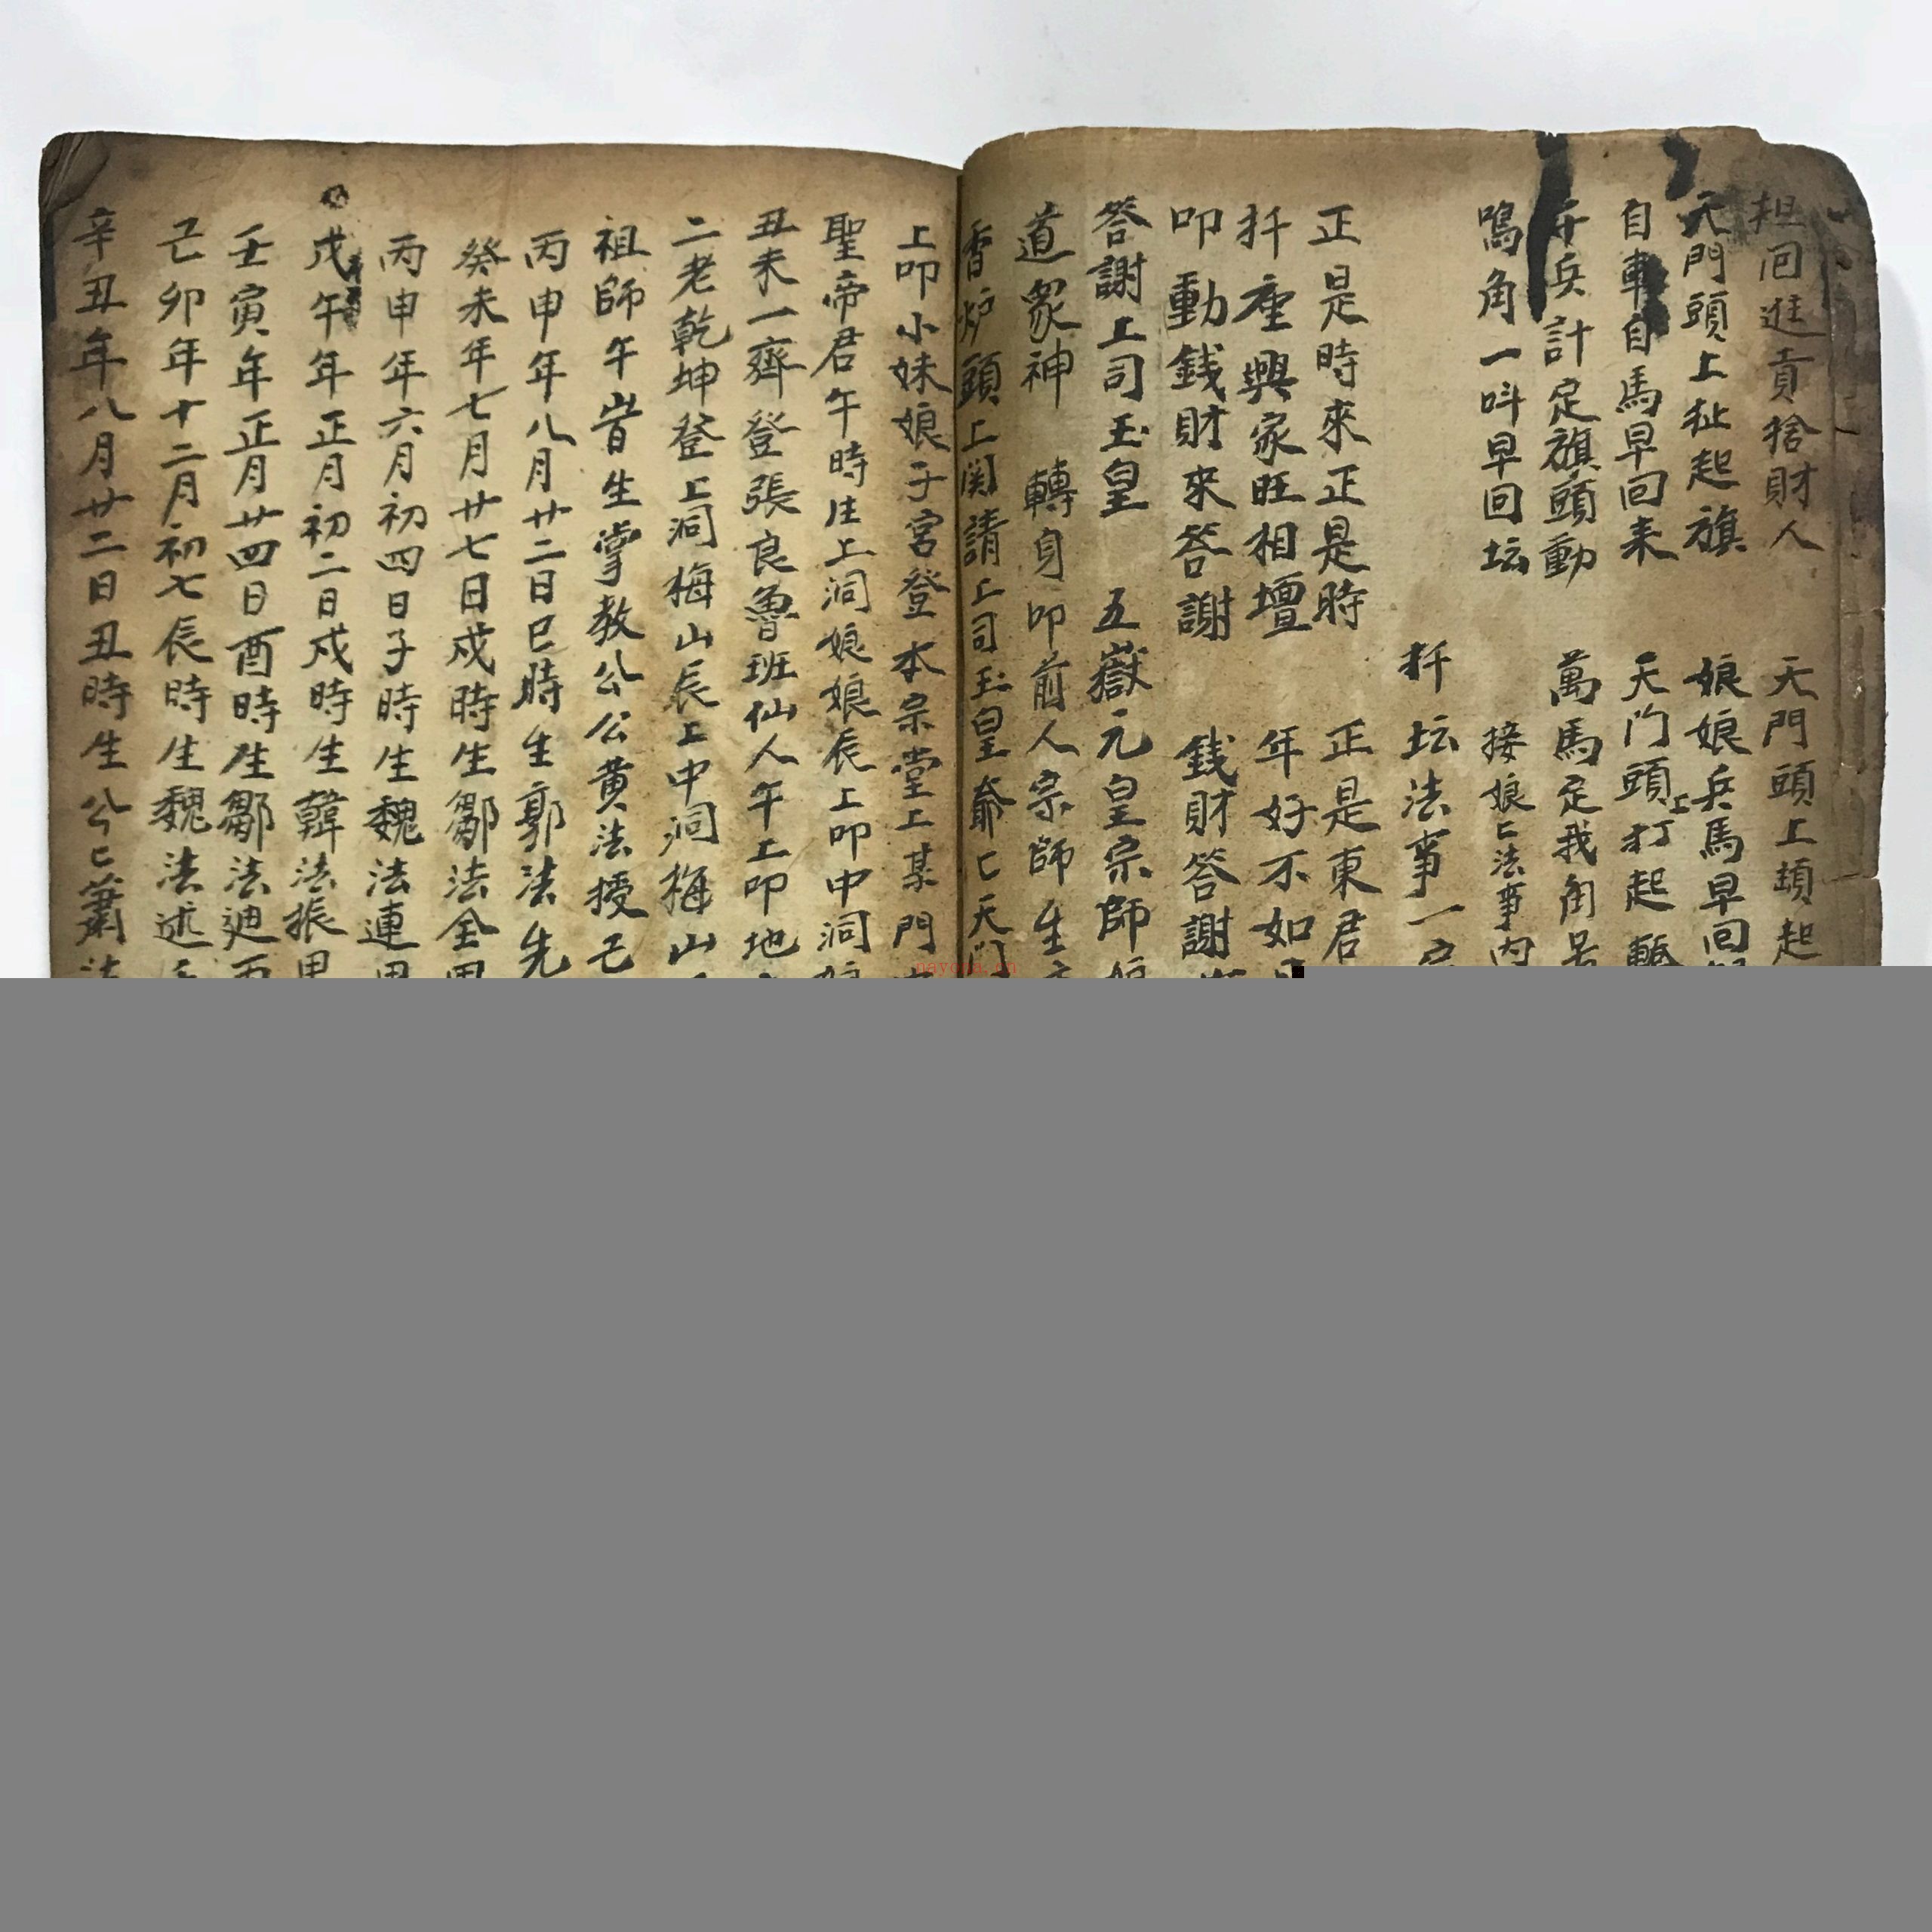 担回進貢捨財人 天門頭上頡起
天門頭上扯起旗 娘娘兵馬早回
自車自馬早回来 天门頭上打起
兵計定旗頭動 萬馬定我角
鳴角一呌早回坛 接娘匕法事内
扦坛法事一
正是時來正是時 正是東君
扦座興家旺相壇 年好不如
叩動錢財來答謝 錢財答謝
答謝上司玉皇 五嶽元皇宗師
道衆神 轉身叩前人宗師
香炉頭上関請上司玉皇爺匕天门
上叩小妹娘子宮登本宗堂上某門
聖帝君午時生上洞娘娘辰上叩中洞
丑未一齊登張良魯班仙人午上叩地
二老乾坤登上洞梅山辰上中洞梅山
祖師午時生掌教公公黄法授己
丙申年八月廿二日巳時生郭法先
癸未年七月廿七日戍時生鄒法全
丙申年六月初四日子時生魏法連
戊午年正月初二日戍時生韓法振
壬寅年正月廿四日酉時生鄒法迪
己卯年十二月初七辰時生魏法述
辛丑年八月廿二日丑時生公匕蕭
nayona.cn